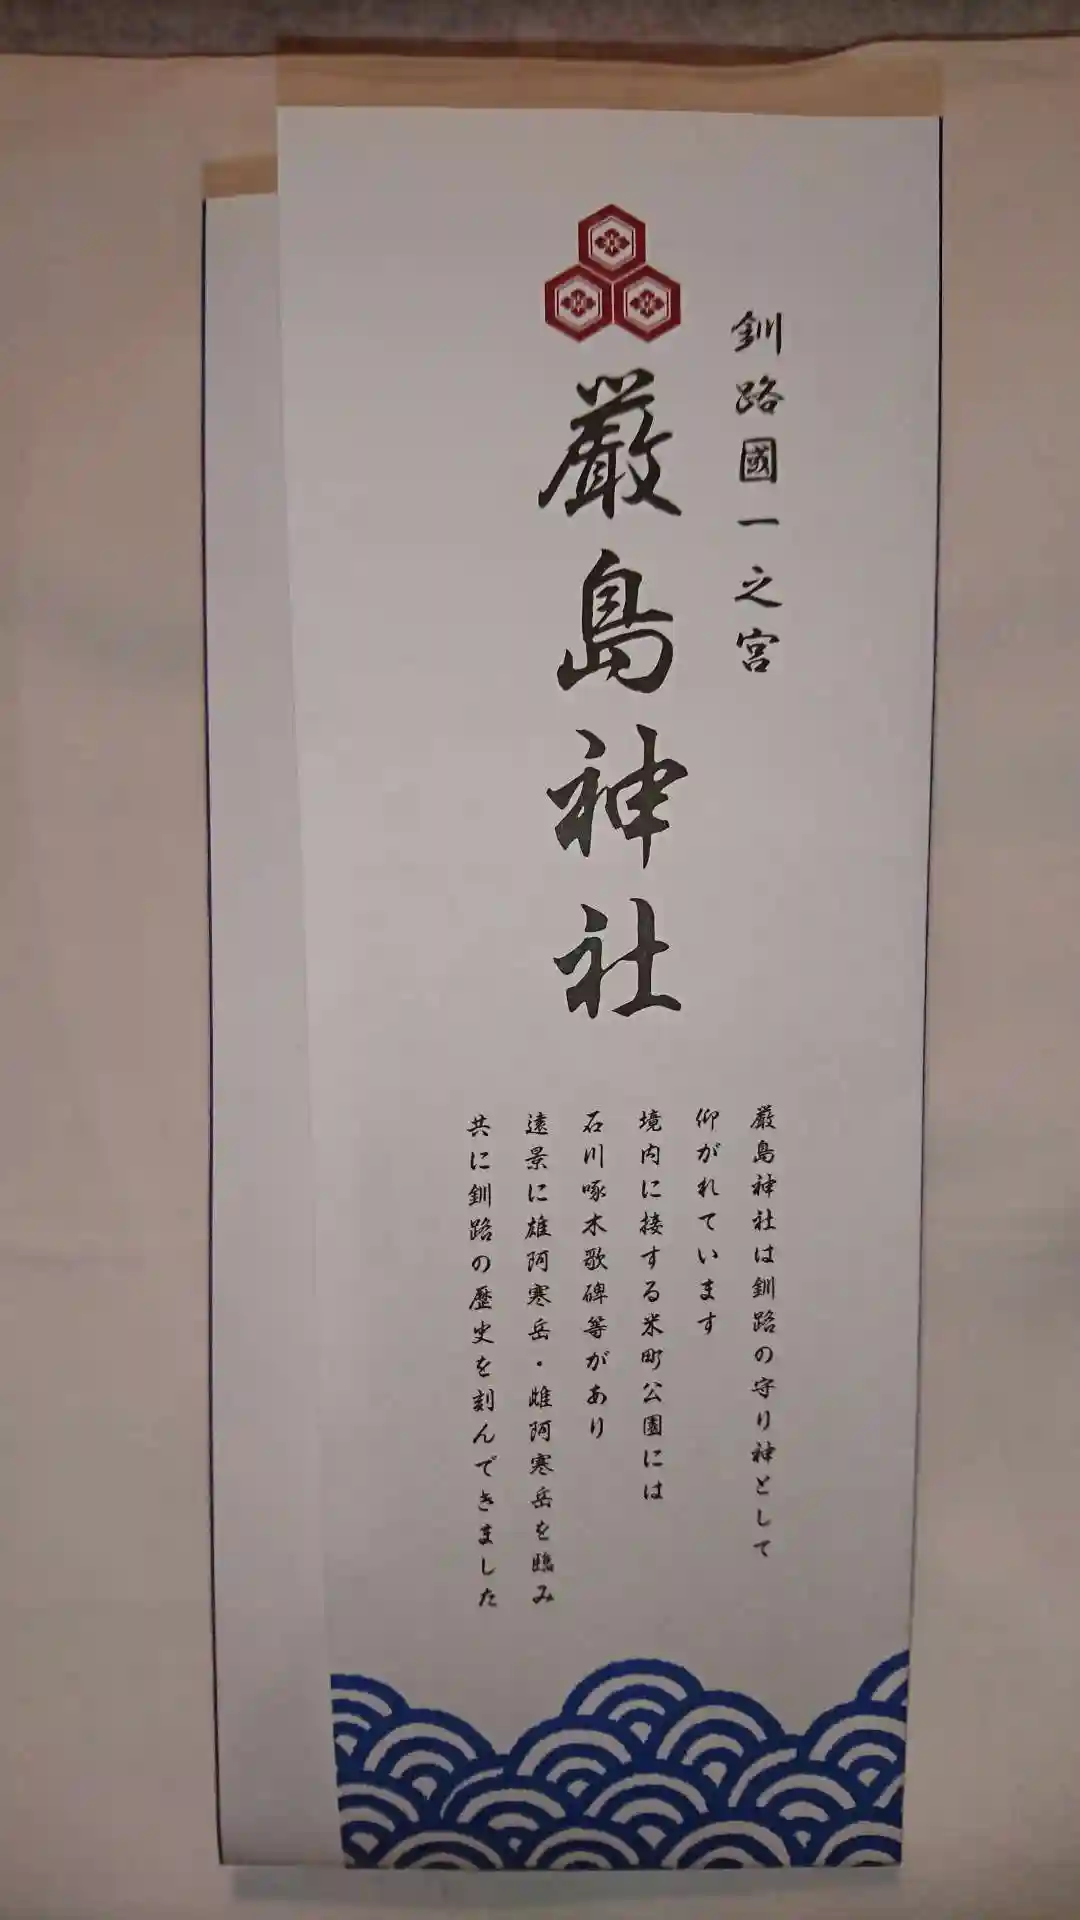 釧路國一之宮
厳島神社
厳島神社は釧路の守り神として
仰がれています
境内に接する米町公園には
石川啄木歌碑等があり
遠景に雄阿寒岳・雌阿寒岳を臨み
共に釧路の歴史を刻んできました